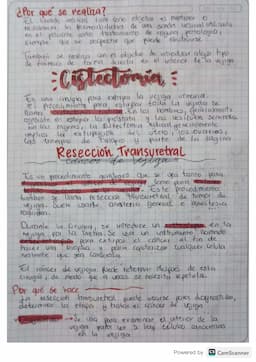 ¿Por qué se realiza?
El sondaje vesical tiene como objetivo el mantener o
restablecer la permeabilidad de una sonda vesical utilizada
en el paciente como tratamiento de alguna patología,
siempre que se sospeche que puede obstruirse.
También se realiza con el objetivo de introducir algún tipo
de fármaco de forma directa en el interior de la vejiga
Cistectomía
Es una cirugía para extirpar la vejiga urinaria.
El procedimiento para extirpar toda la vejiga se
llama En los hombres, generalmente
consiste en extirpar la próstata y las vesículas seminales
en las mujeres, la cistectomía radical generalmente
implica la extirpación del útero, los ovarios,
las trompas de Falopio y parte de la vagina
Resección Transuretral
Cáncer de vejiga
Es un procedimiento quirúrgico que se usa tanto para
como para
Este procedimiento
también se llama resección transuretral de tumor de
vejiga. Suele usarse anestesia general o anestesia
raquídea.
Durante la cirugía, se introduce un en la
vejiga por la uretra. Se usa un instrumento llamado
para extirpar el cáncer a fin de
hacer una biopsia y para cauterizar cualquier célula
restante que sea cancerosa.
El cáncer de vejiga puede retornar después de esta
cirugía, de modo que a veces se necesita repetirla.
Por qué se hace
La resección transuretral puede usarse para diagnosticar,
determinar la etapa y tratar el cáncer de vejiga.
Se usa para examinar el interior de la
vejiga para ver si hay células cancerosas
en la vejiga
Powered by CamScanner